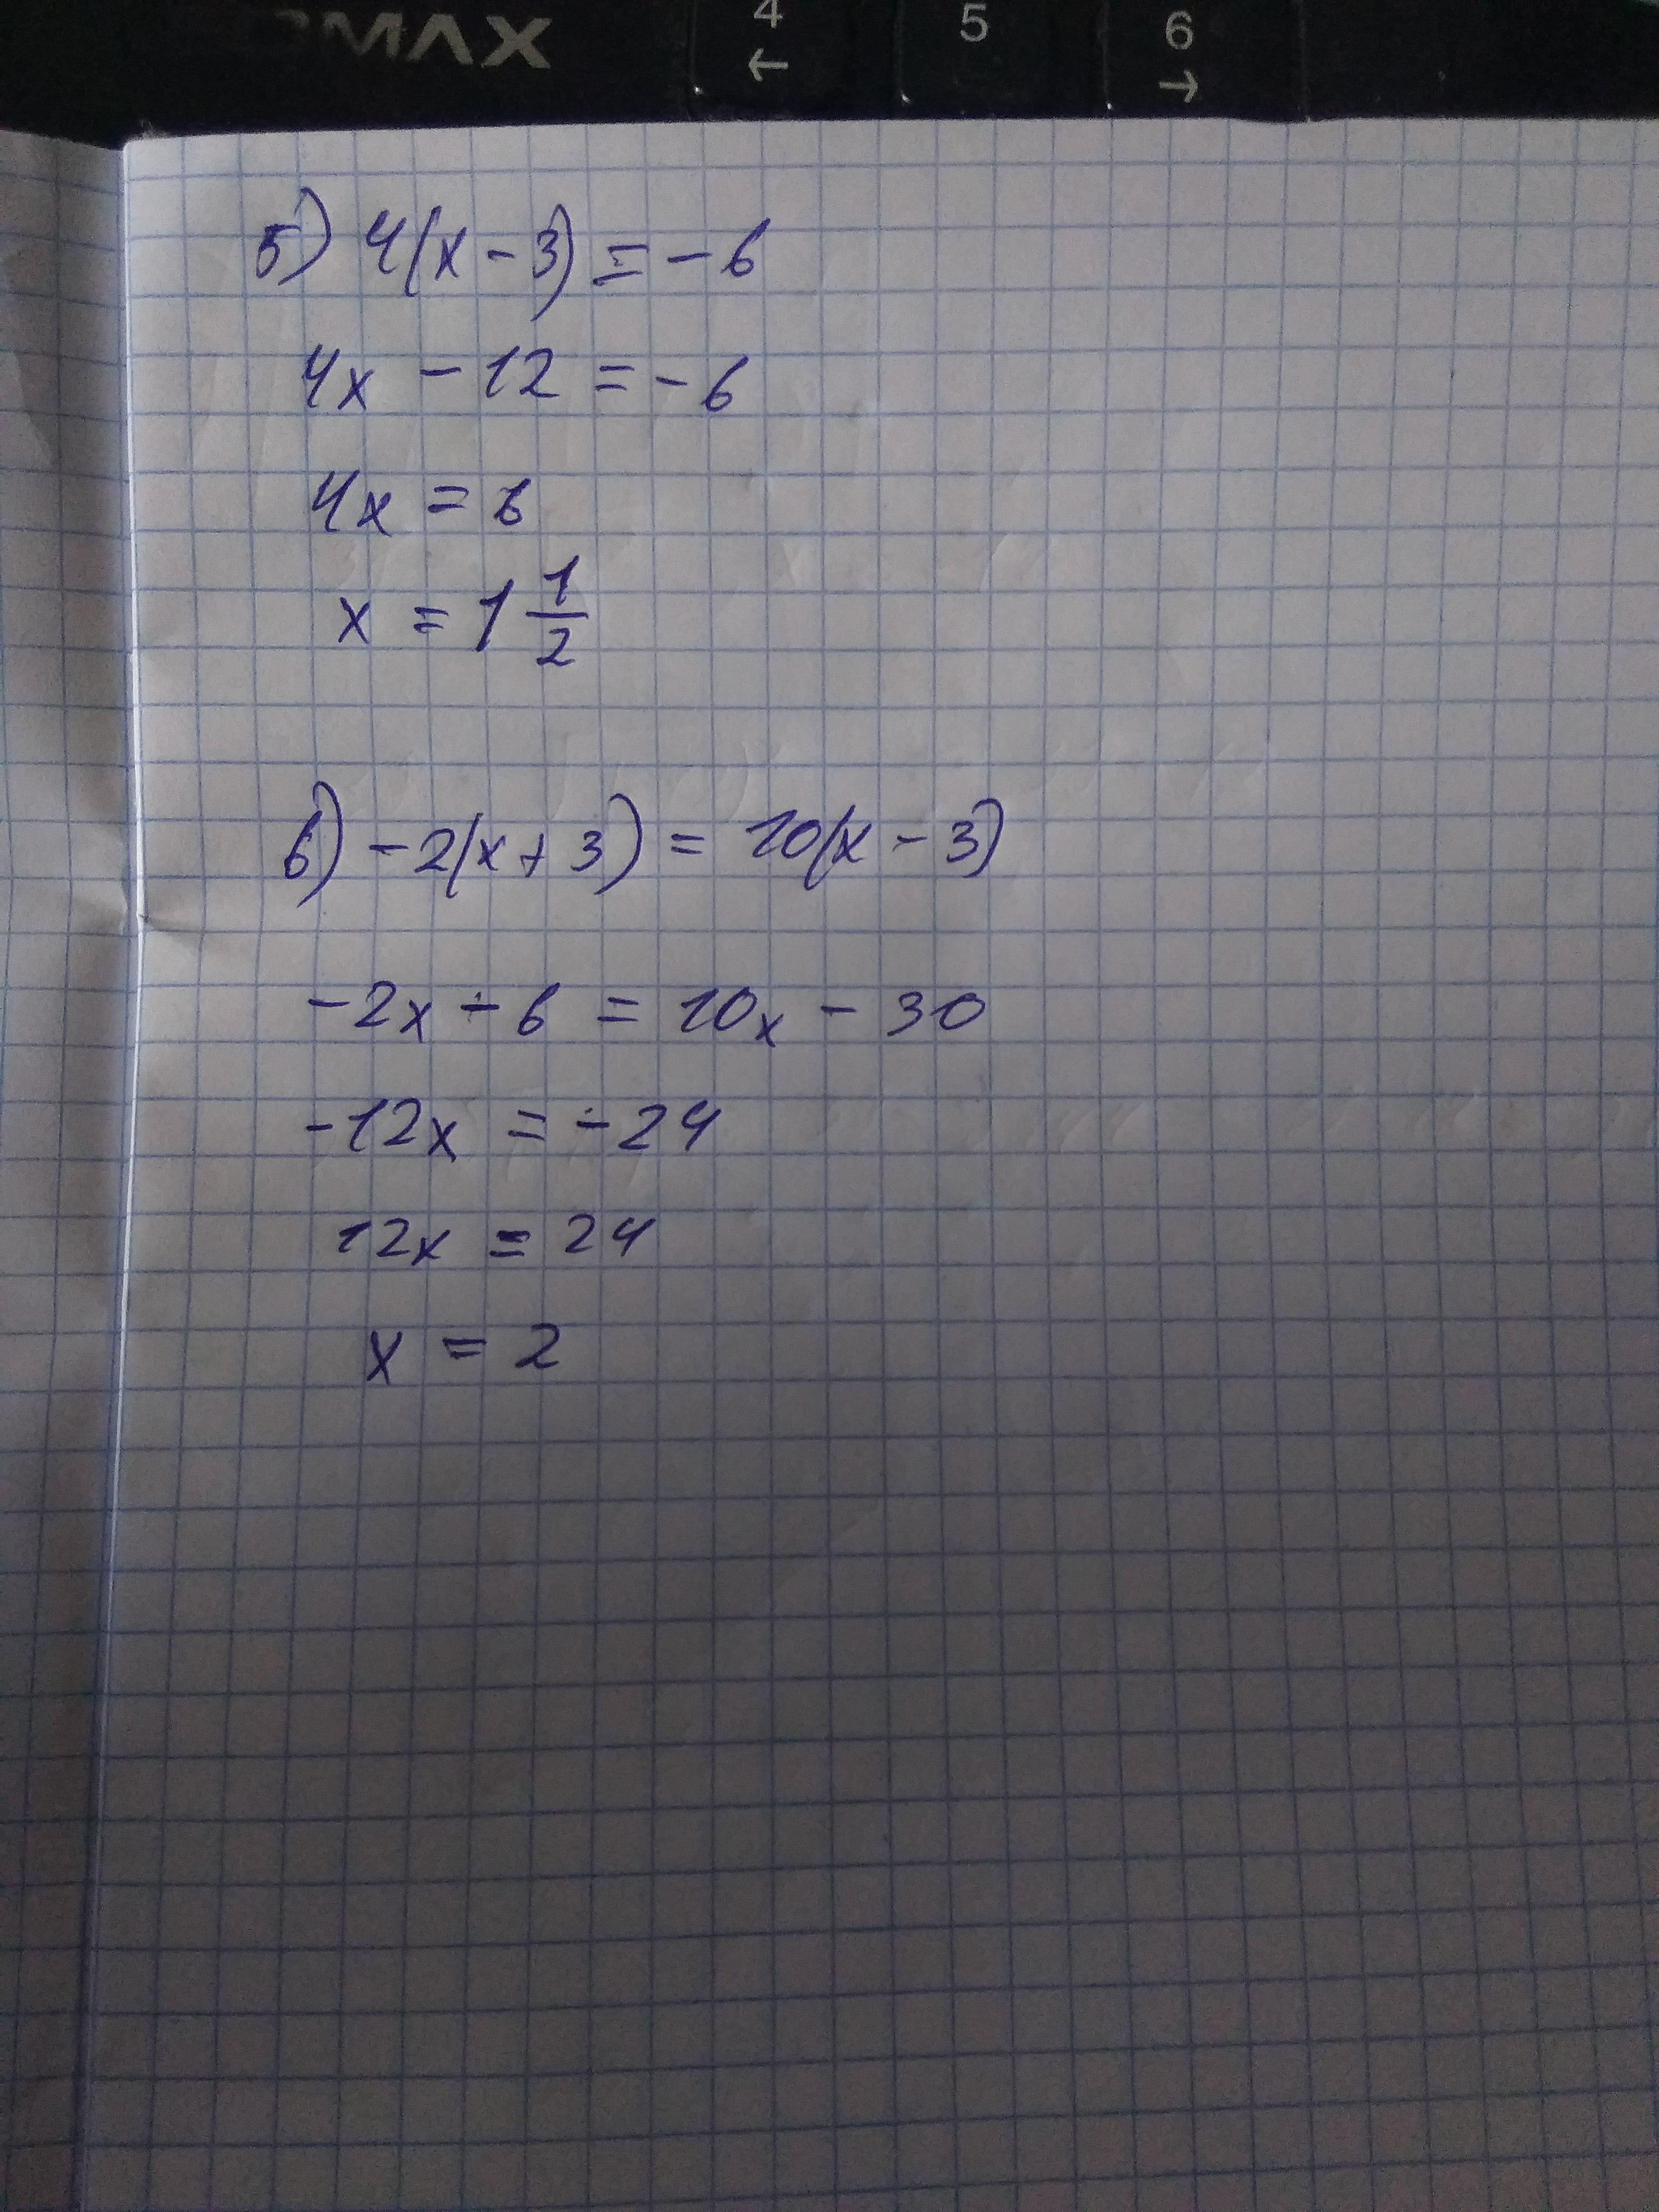 MAX 4 5 6
← →
5) 4(x - 3) = - 6
4x - 12 = - 6
4x = 6
x = 1 1/2
6) - 2(x + 3) = 10(x - 3)
- 2x - 6 = 10x - 30
- 12x = - 24
12x = 24
x = 2